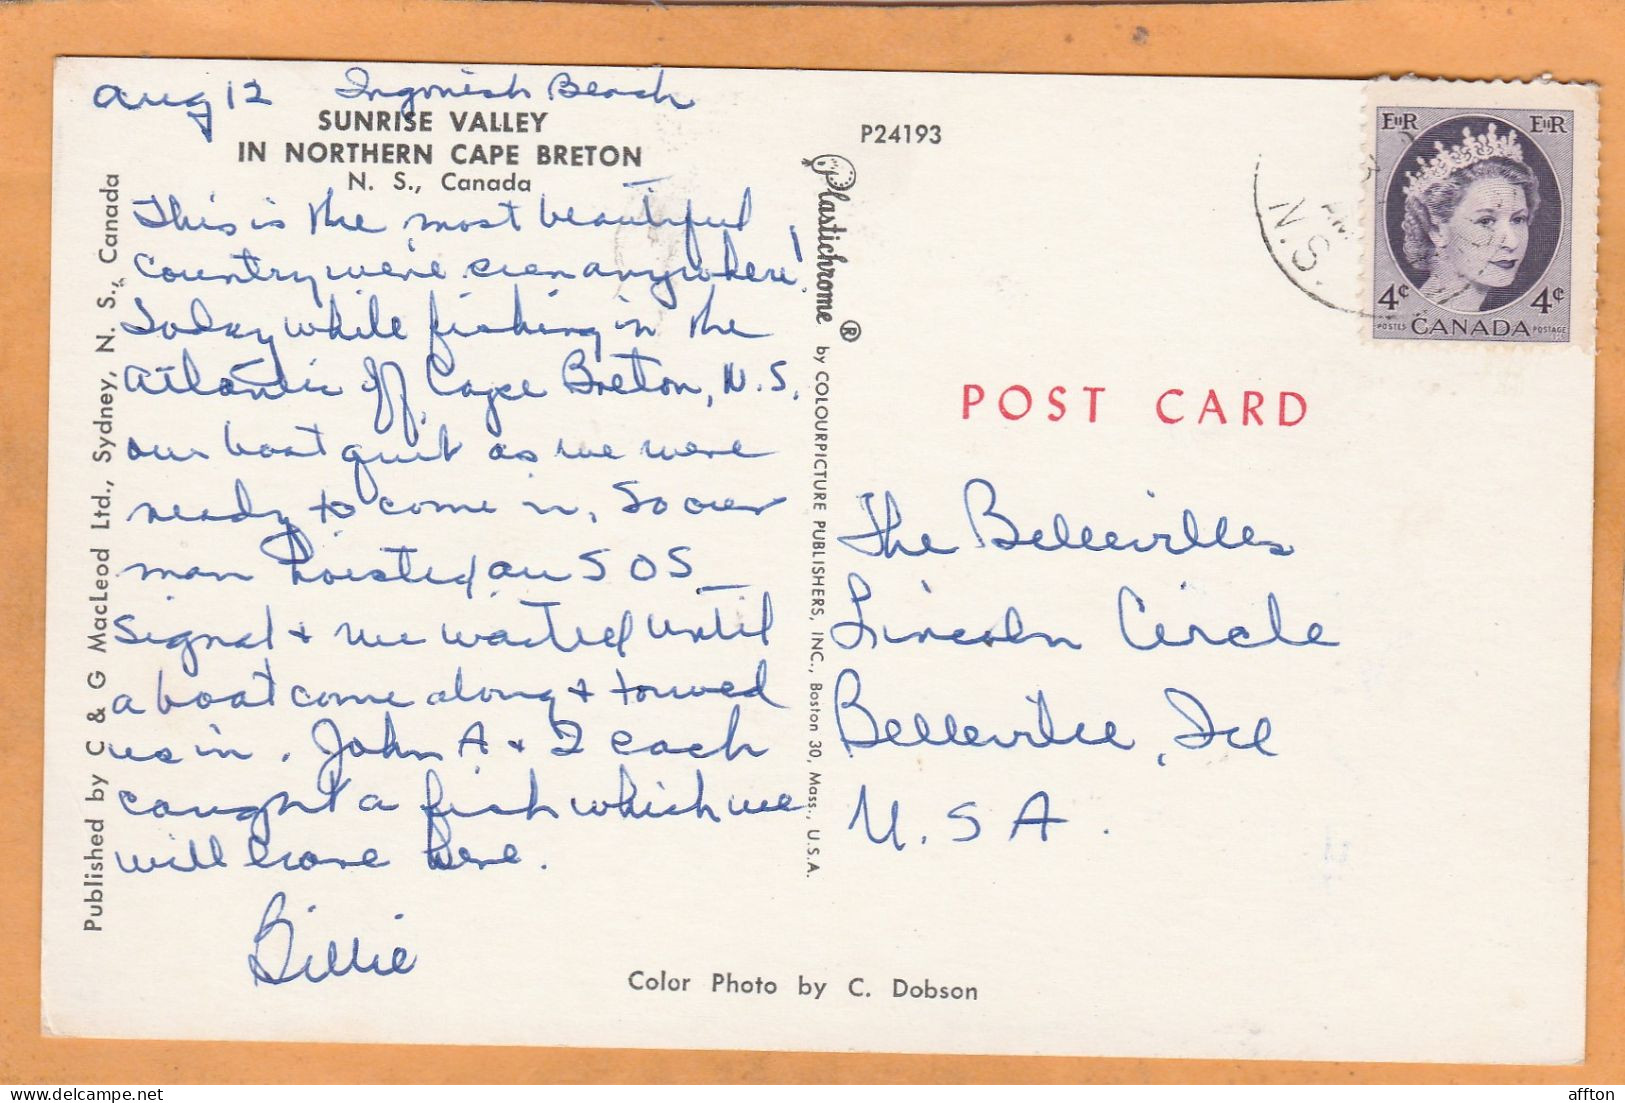 Aug 12 Ingonish Beach
SUNRISE VALLEY
IN NORTHERN CAPE BRETON
N. S., Canada
This is the most beautiful
country we've seen anywhere!
Today while fishing in the
Atlantic off Cape Breton, N.S.
our boat quit as we were
ready to come in. So our
man hoisted an SOS
signal + we waited until
a boat come along + towed
us in. John A + I each
caught a fish which we
will have here.
Billie
Published by C & G MacLeod Ltd., Sydney, N. S., Canada
Plastichrome ® by COLOURPICTURE PUBLISHERS, INC., Boston 30, Mass., U.S.A.
P24193
N.S.
AM
EIIR EIIR
4¢ 4¢
POSTES CANADA POSTAGE
POST CARD
The Bellevilles
Lincoln Circle
Belleville, Ill
U.S A.
Color Photo by C. Dobson
affton